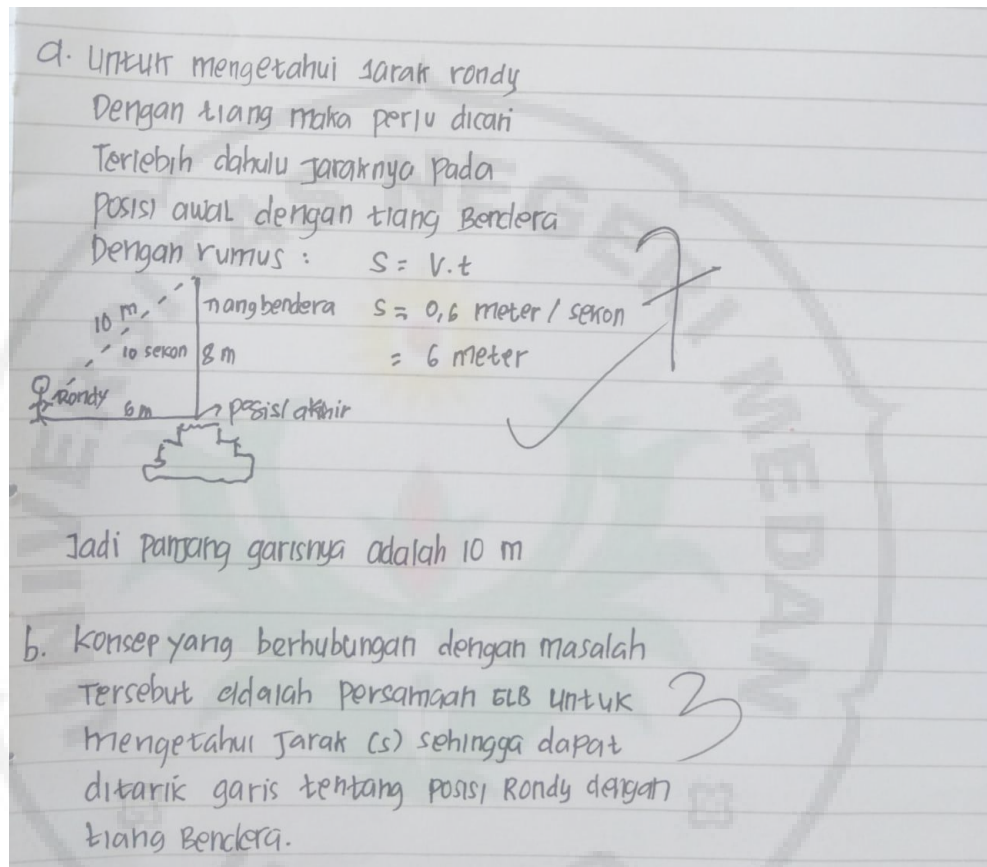 a. Untuk mengetahui Jarak rondy
Dengan tiang maka perlu dicari
Terlebih dahulu Jaraknya Pada
Posisi awal dengan tiang Bendera
Dengan rumus : S = V.t
10 m tiang bendera S = 0,6 meter / sekon
10 sekon 8 m = 6 meter
Rondy 6m posisi akhir
7
Jadi panjang garisnya adalah 10 m
b. Konsep yang berhubungan dengan masalah
Tersebut adalah persamaan GLB untuk 3
mengetahui Jarak (s) sehingga dapat
ditarik garis tentang posisi Rondy dengan
tiang Bendera.
UNIVERSITAS NEGERI MEDAN